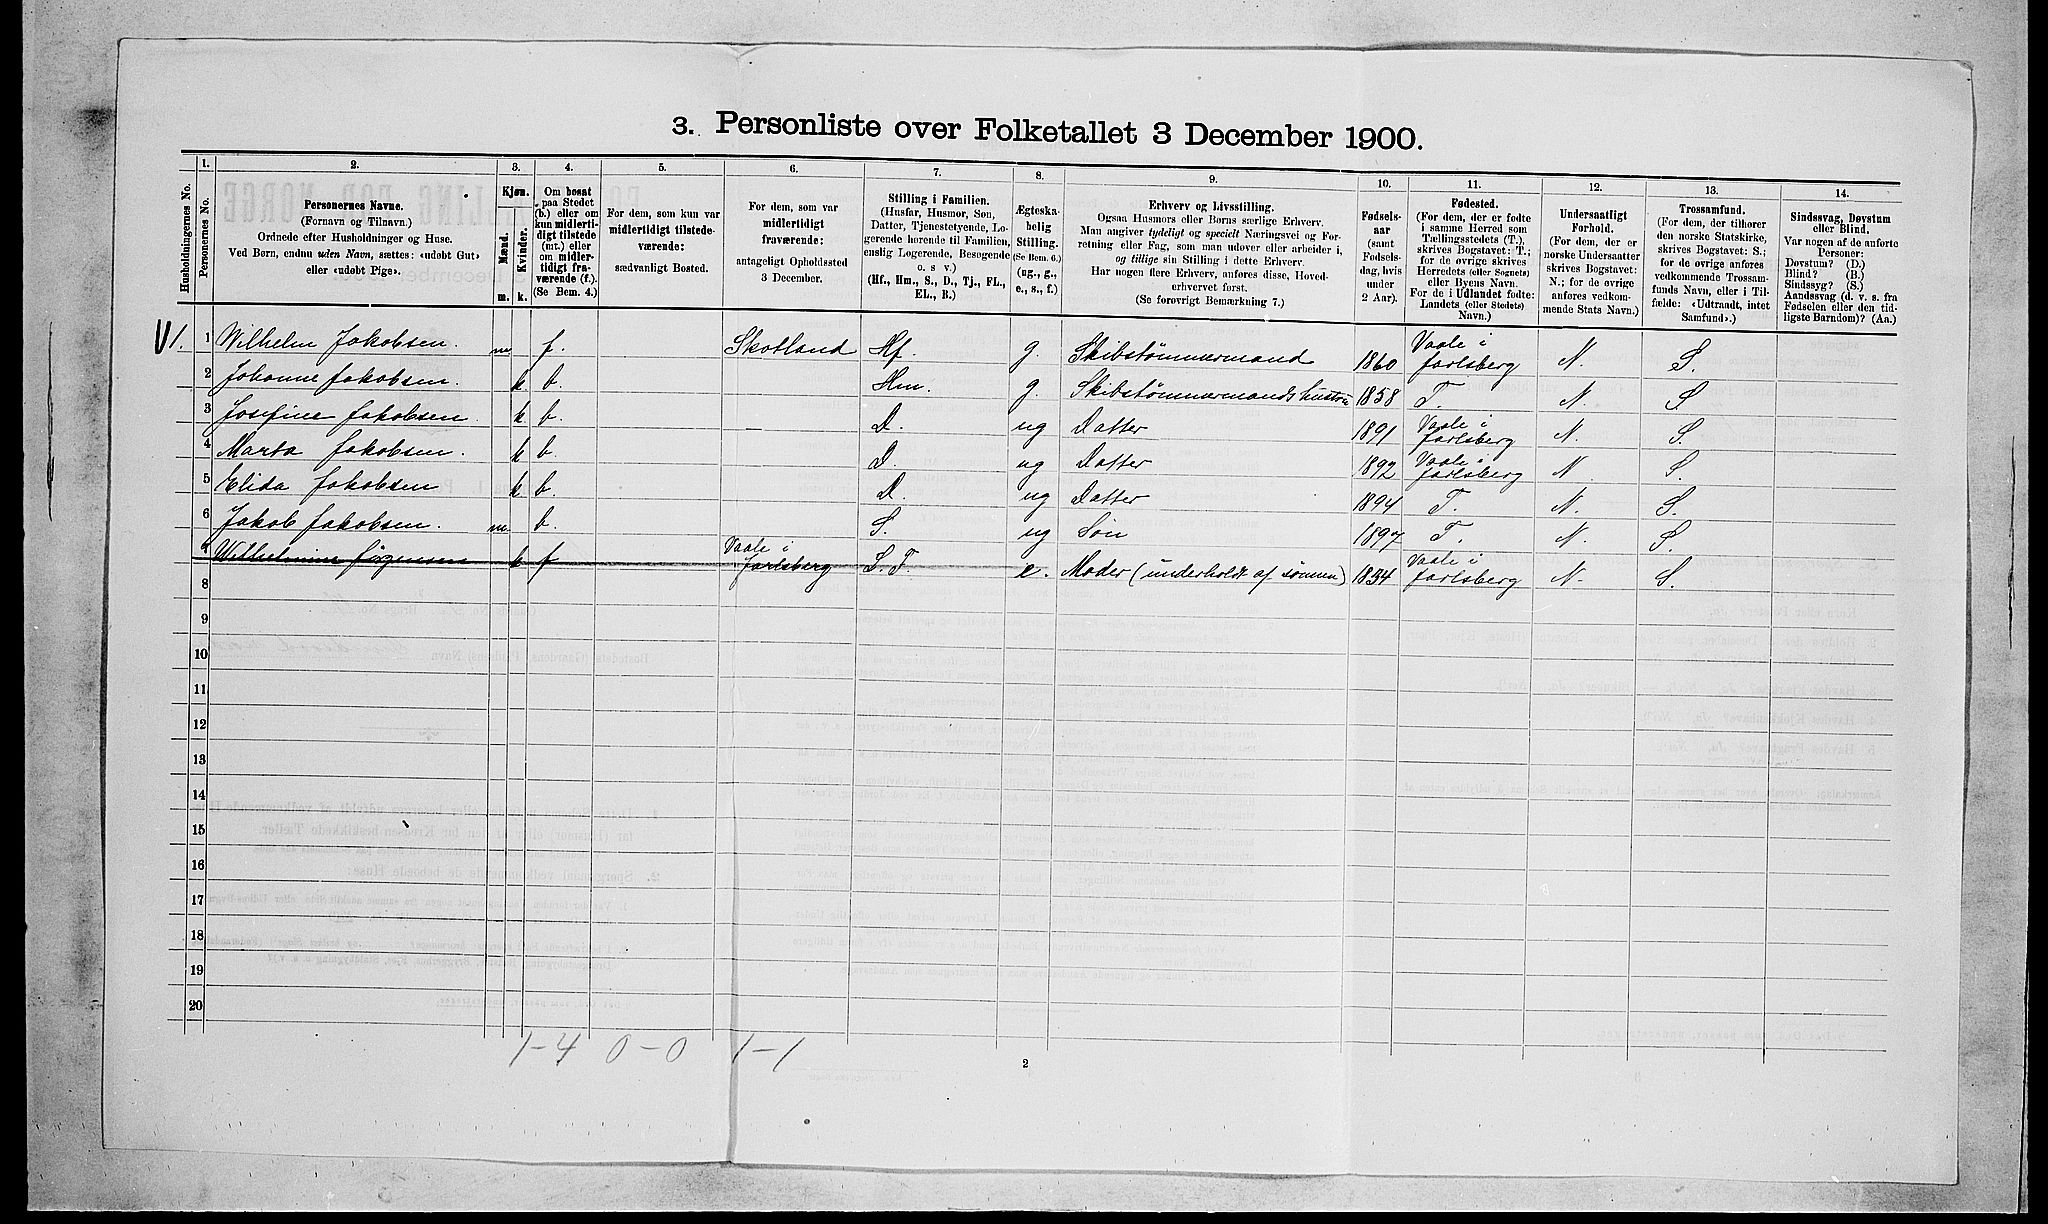 3. Personliste over Folketallet 3 December 1900.
Husholdningernes No.
1. Personernes No.
2. Personernes Navne.
(Fornavn og Tilnavn.)
Ordnede efter Husholdninger og Huse.
Ved Børn, endnu uden Navn, sættes: «udøbt Gut»
eller «udøbt Pige».
3. Kjøn.
Mænd. Kvinder.
m. k.
4. Om bosat
paa Stedet
(b.) eller om
kun midlerti-
digt tilstede
(mt.) eller
om midler-
tidigt fra-
værende (f.).
(Se Bem. 4.)
5. For dem, som kun var
midlertidigt tilstede-
værende:
sædvanligt Bosted.
6. For dem, som var
midlertidigt
fraværende:
antageligt Opholdssted
3 December.
7. Stilling i Familien.
(Husfar, Husmor, Søn,
Datter, Tjenestetyende, Lo-
gerende hørende til Familien,
enslig Logerende, Besøgende
o. s v.)
(Hf., Hm., S., D., Tj., FL.,
EL., B.)
8. Ægteska-
belig
Stilling.
(Se Bem. 6.)
(ug., g.,
e., s., f.)
9. Erhverv og Livsstilling.
Ogsaa Husmors eller Børns særlige Erhverv.
Man angiver tydeligt og specielt Næringsvei og For-
retning eller Fag, som man udøver eller arbeider i,
og tillige sin Stilling i dette Erhverv.
Har nogen flere Erhverv, anføres disse, Hoved-
erhvervet først.
(Se forøvrigt Bemærkning 7.)
10. Fødsels-
aar
(samt
Fødsels-
dag, hvis
under
2 Aar).
11. Fødested.
(For dem, der er fødte
i samme Herred som
Tællingsstedets (T.),
skrives Bogstavet: T.;
for de øvrige skrives
Herredets (eller Sognets)
eller Byens Navn.
For de i Udlandet fødte:
Landets (eller Stedets)
Navn.)
12. Undersaatligt
Forhold.
(For dem, der er
norske Undersaatter
skrives Bogstavet:
N.; for de øvrige
anføres vedkom-
mende Stats Navn.)
13. Trossamfund.
(For dem, der tilhører
den norske Statskirke,
skrives Bogstavet: S.;
for de øvrige anføres
vedkommende Trossam-
funds Navn, eller i Til-
fælde: «Udtraadt, intet
Samfund».)
14. Sindssvag, Døvstum
eller Blind.
Var nogen af de anførte
Personer:
Døvstum? (D.)
Blind? (B.)
Sindssyg? (S.)
Aandssvag (d. v. s. fra
Fødselen eller den tid-
ligste Barndom)? (Aa.)
1 Wilhelm Jakobsen. m. f. Skotland Hf. g. Skibstømmermand 1860 Vaale i Jarlsberg N. S.
2 Johanne Jakobsen. k. b. Hm. g. Skibstømmermands hustru 1858 T. N. S
3 Josefine Jakobsen k b. D. ug Datter 1891 Vaale i Jarlsberg N. S.
4 Marta Jakobsen. k b. D. ug Datter 1892 Vaale i Jarlsberg N S.
5 Elida Jakobsen k b. D. ug Datter 1894 T. N. S.
6 Jakob Jakobsen. m. b. S. ug Søn 1897 T. N. S.
7 Wilhelmine Jørgensen k f Vaale i Jarlsberg e. Moder (underholdt af sønnen) 1834 Vaale i Jarlsberg N. S.
8
9
10
11
12
13
14
15
16
17
18
19
20
1-4 0-0 1-1
2